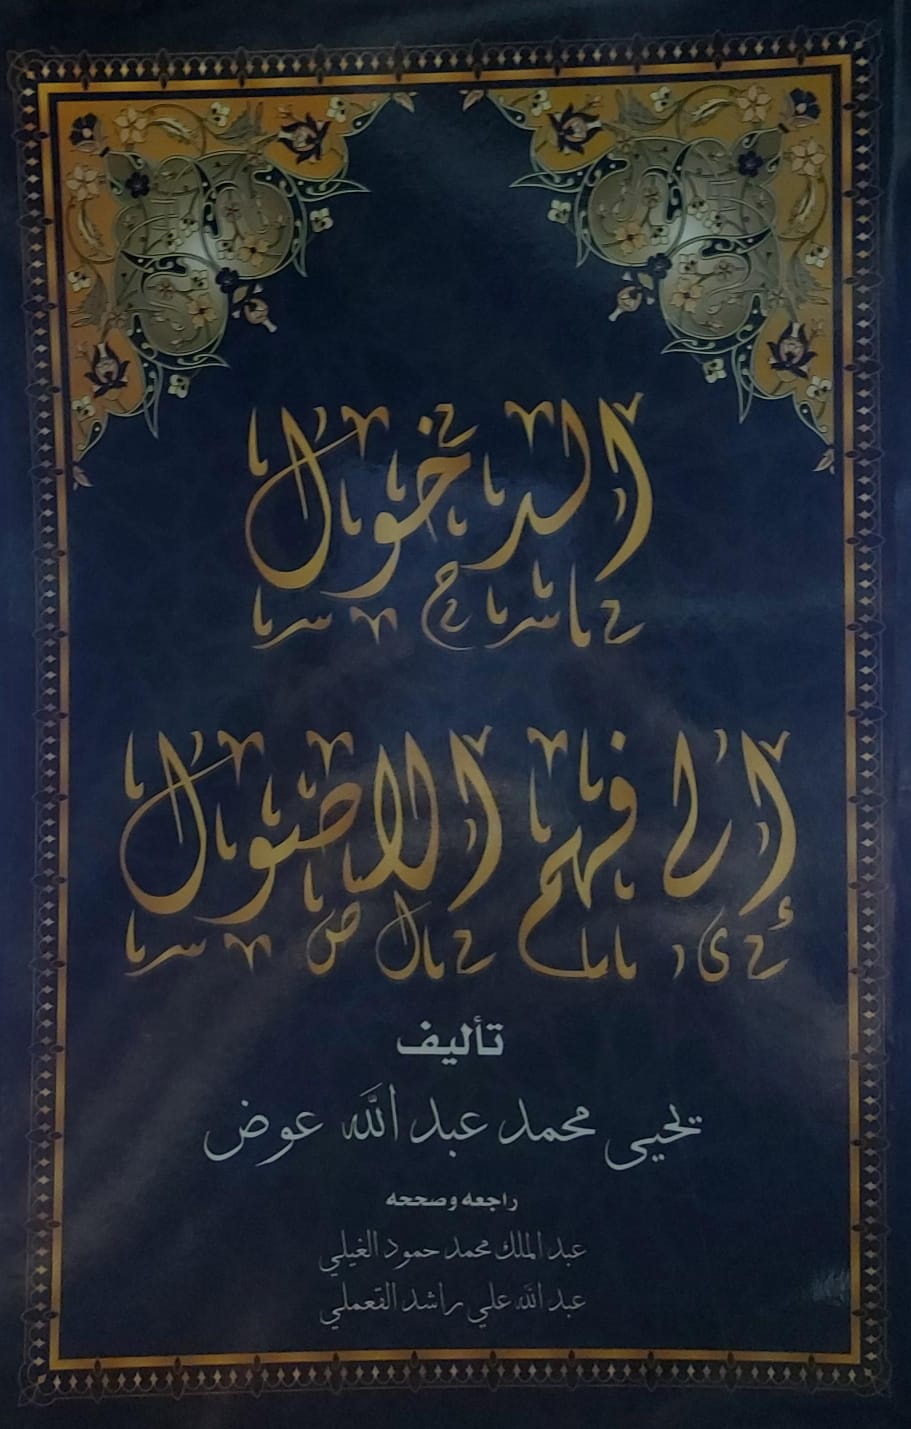 الدخول
إلى فهم الأصول
تأليف
يحيى محمد عبد الله عوض
راجعه وصححه
عبد الملك محمد حمود الغيلي
عبد الله علي راشد القعملي